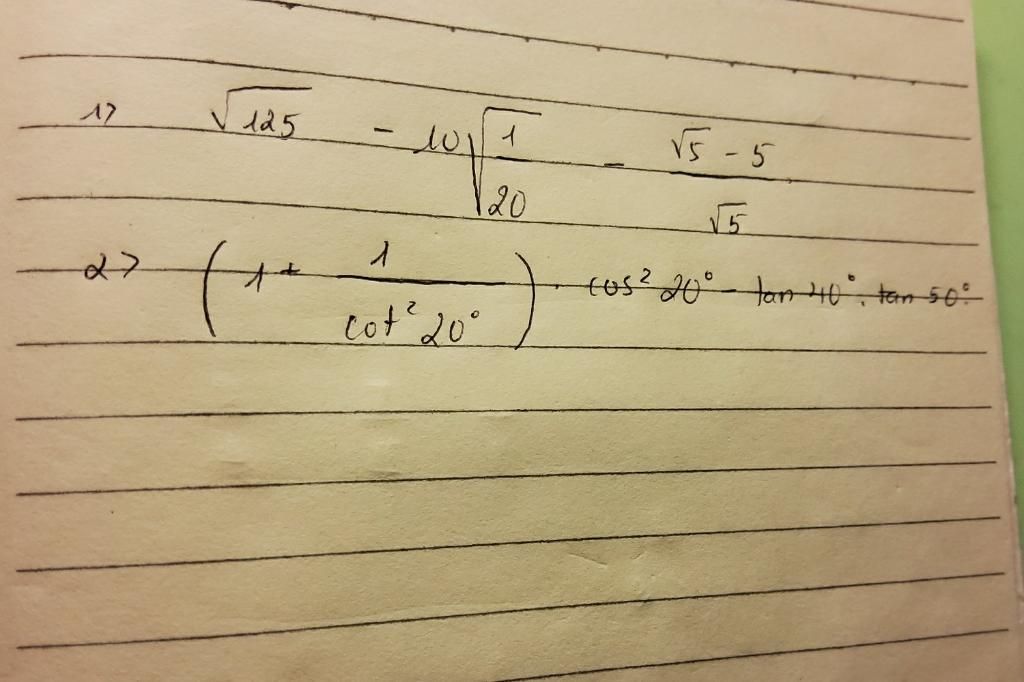 1> √125 - 10√(1/20) - (√5 - 5)/√5
2> (1 + 1/cot² 20°) . cos² 20° - tan 40° . tan 50°